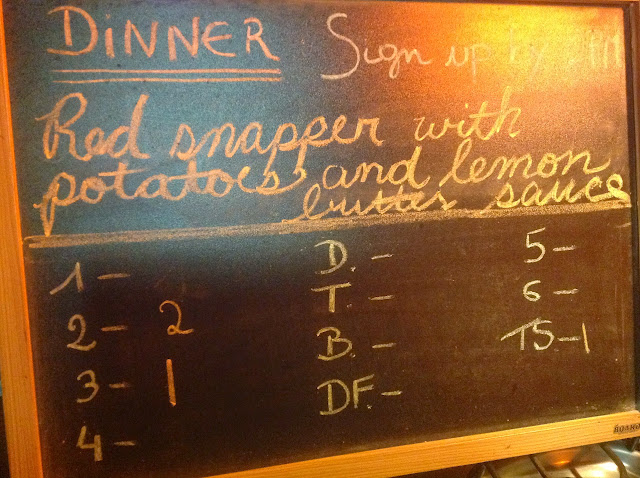 DINNER Sign up by 2PM
Red snapper with
potatoes and lemon
butter sauce
1 - D. - 5 -
2 - 2 T. - 6 -
3 - 1 B. - T5 - 1
4 - DF. -